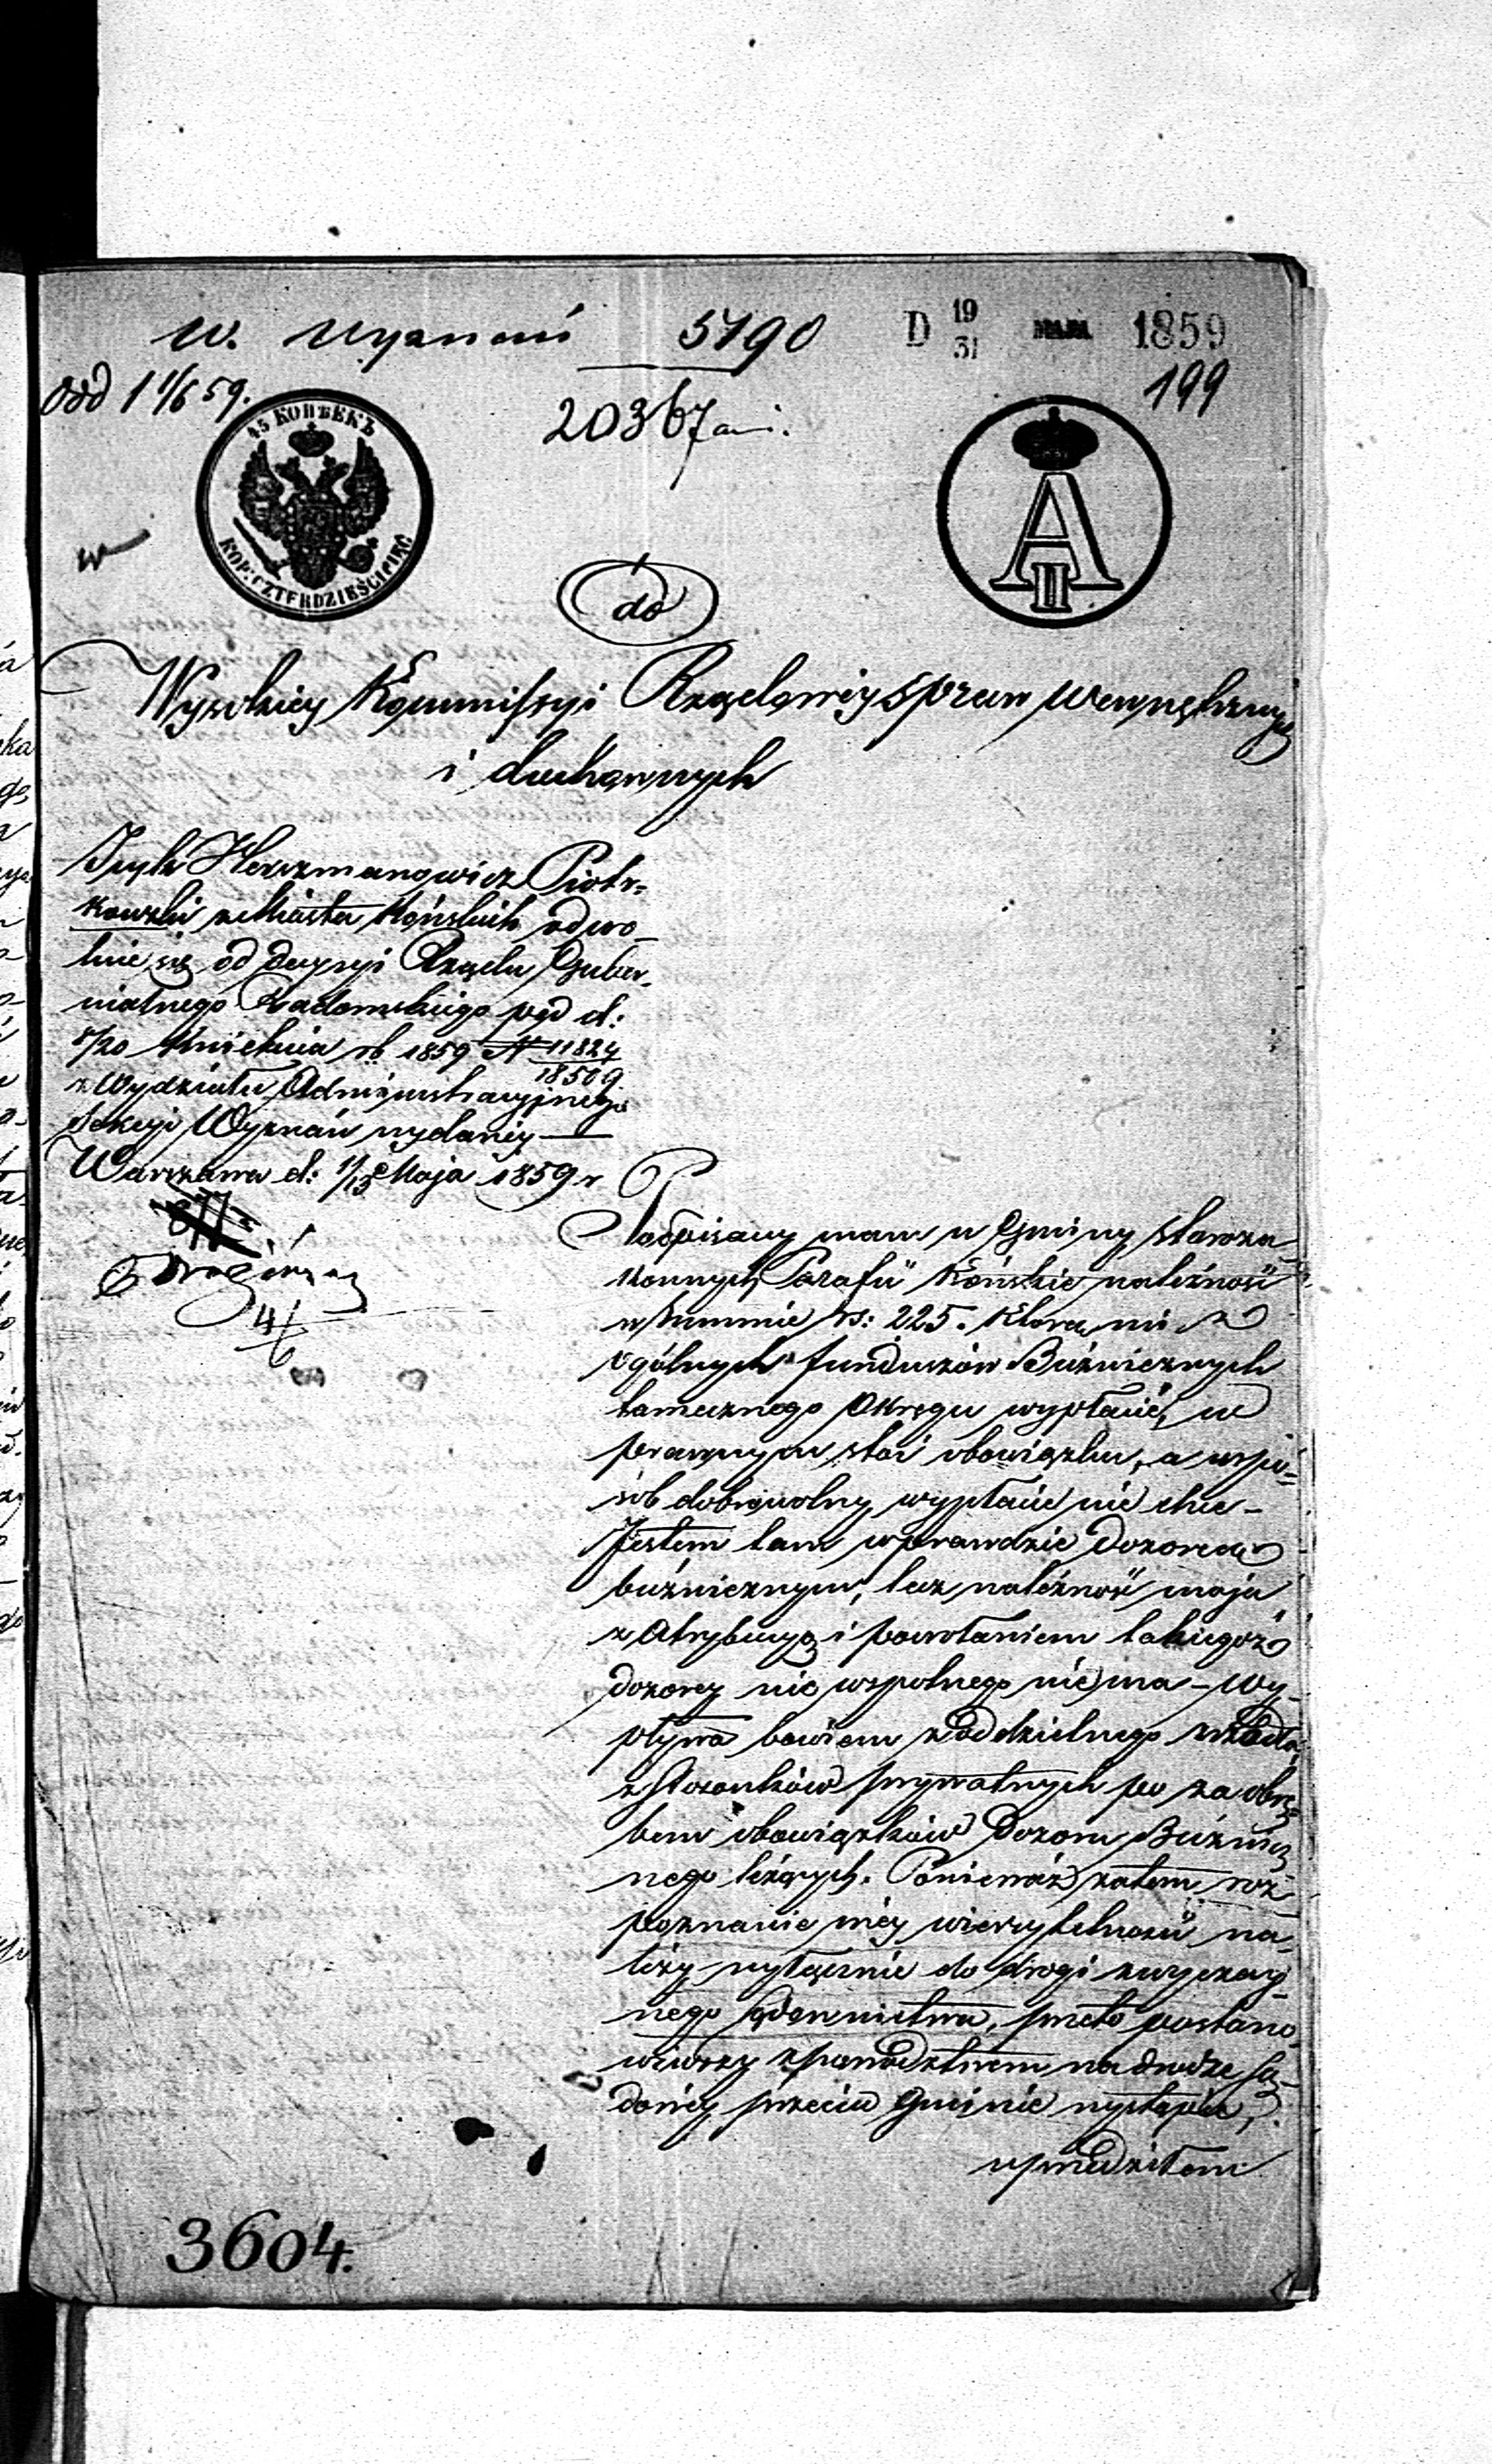 W. Wyznań 5790 D 19/31 MAJA 1859
odd 1 1/6 59. 199
20367
45 КОПѢЕКЪ
KOP: CZTERDZIEŚCI PIĘĆ
A II
do
Wysokiey Kommissyi Rządowéy Spraw Wewnętrznych
i duchownych
Icyk Herszmanowicz Piotr=
kowski z Miasta Końskich odwo-
łuie się od decyzyi Rządu Guber-
nialnego Radomskiego pod d:
8/20 Kwietnia rb 1859 N 11824/18509
z Wydziału Administracyjnego
Sekcyi Wyznań wydanéy —
Warszawa d: 1/13 Maja 1859 r
4/6
Podpisany mam u Gminy Staroza-
konnych Parafii Końskie należność
w Summie rs: 225. którą mi z
ogólnych funduszów Bużnicznych
tamecznego Okręgu wypłacić, w
prawnym stoi obowiązku, a w spo=
sób dobrowolny wypłacić nie chce -
Jestem tam wprawdzie Dozorcą
bużnicznym, lecz należność moja
z Atrybucyą i powołaniem takiegoż
dozorcy nic wspolnego nie ma - wy-
pływa bowiem z oddzielnego źródła,
z stosunków prywatnych po za obrę=
bem obowiązków Dozoru Bużnicz
nego leżących. Ponieważ zatem roz-
poznanie méy wierzytelności na-
leży wyłącznie do drogi zwyczay
nego sądownictwa, przeto postano
wiwszy z powództwem na drodze Są-
dowéy przeciw Gminie wystąpić,
uprzedziłem
3604.